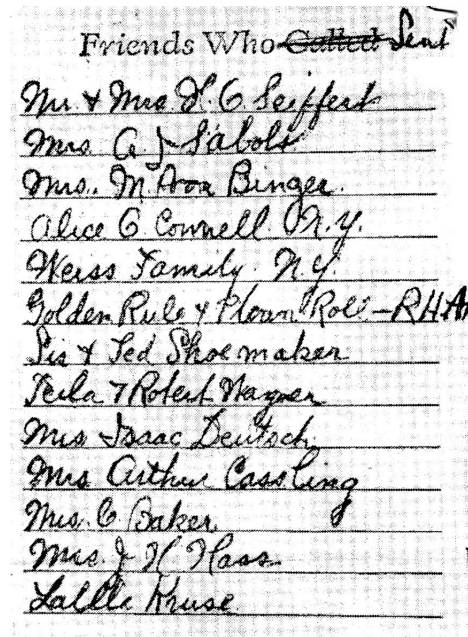 Friends Who Called Sent
Mr. & Mrs. C Seiffert
Mrs. A J Sabols
Mrs. M. Ava Binger.
Alice C. Connell. N.Y.
Weiss Family. N.Y.
Golden Rule & Roll - R.H.A
Sis & Ted Shoemaker
& Robert Wagner
Mrs Isaac Deutsch
Mrs Arthur Cassling
Mrs. C Baker
Mrs. J H Hass
Kruse